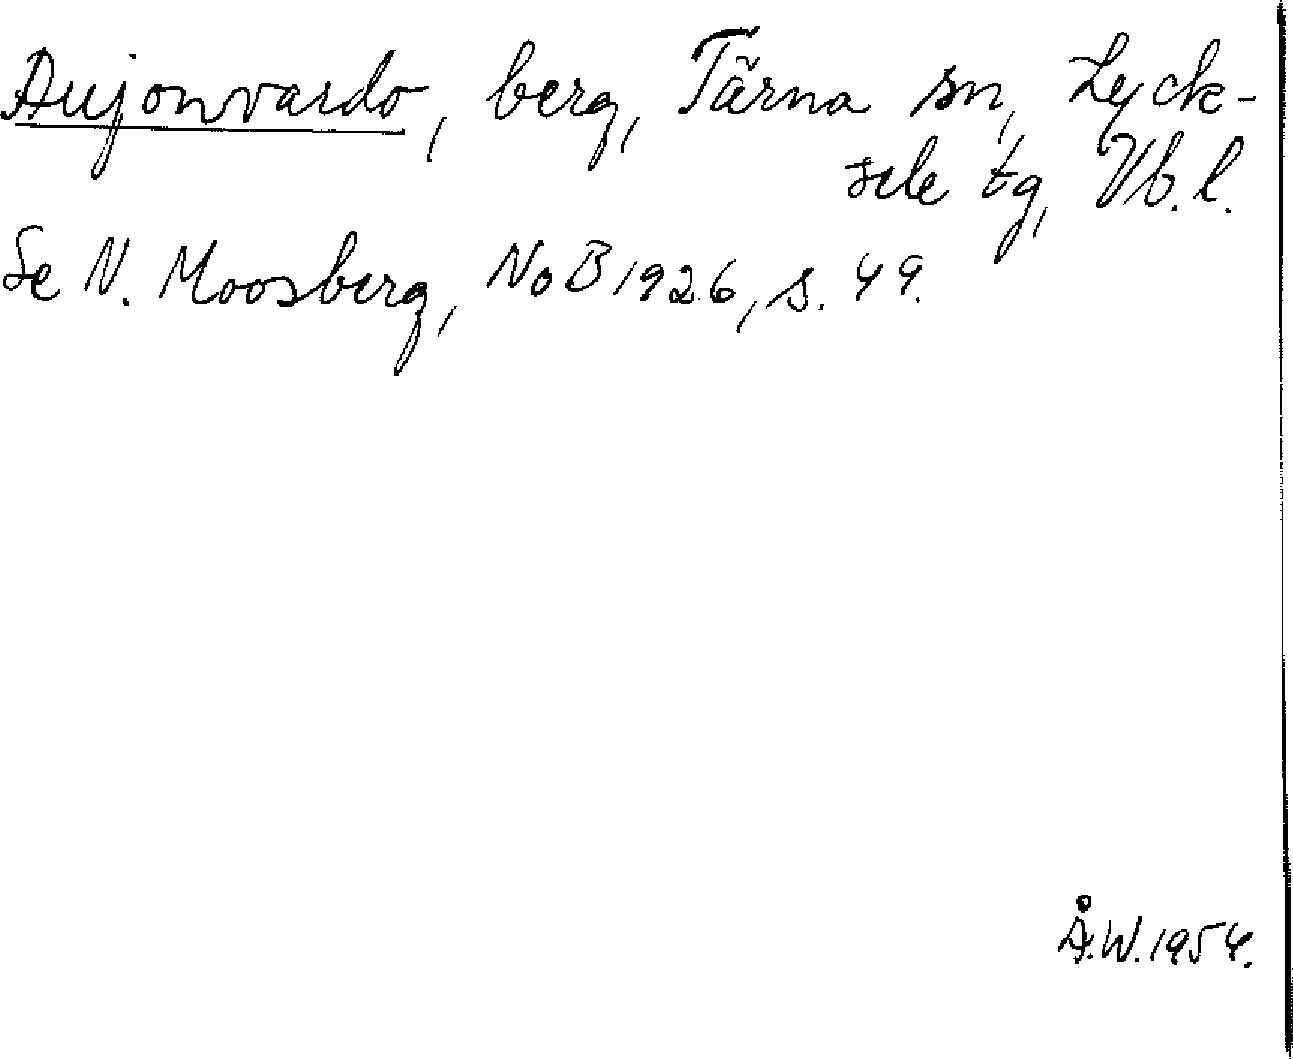 Aujonvardo, berg, Tärna sn, Lyck-
sele tg, Vb. l.
Se N. Moosberg, NoB 1926, s. 49.
Å.W. 1954.